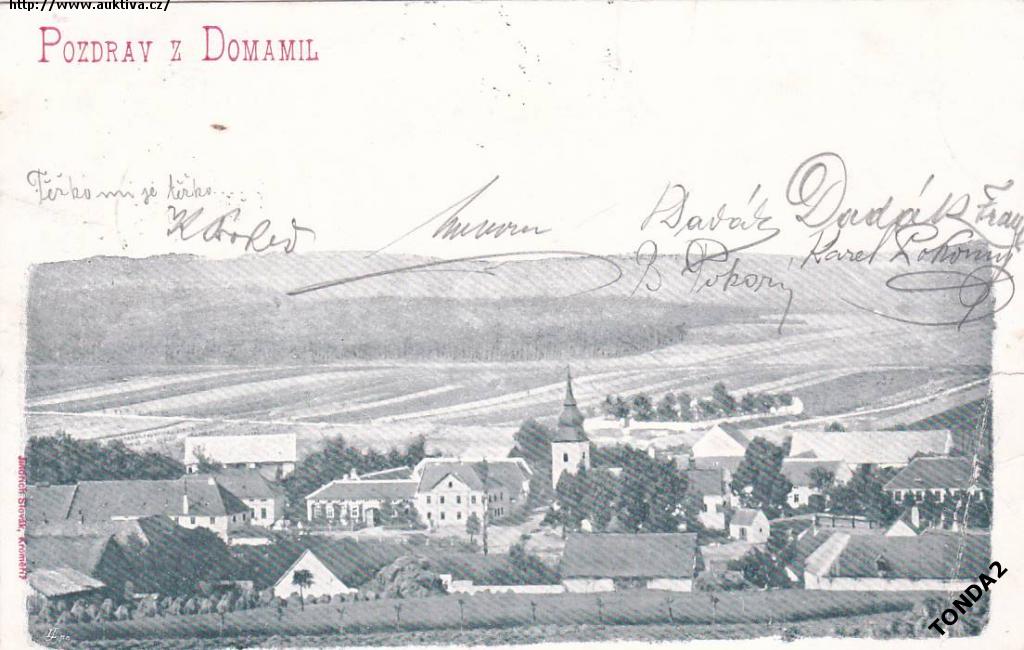 http://www.auktiva.cz/
POZDRAV Z DOMAMIL
Těžko mi je těžko...
Dadák Dadák Franz
B Pokorný Karel Pokorný
JINDŘICH SLOVÁK, KROMĚŘÍŽ
TONDA2